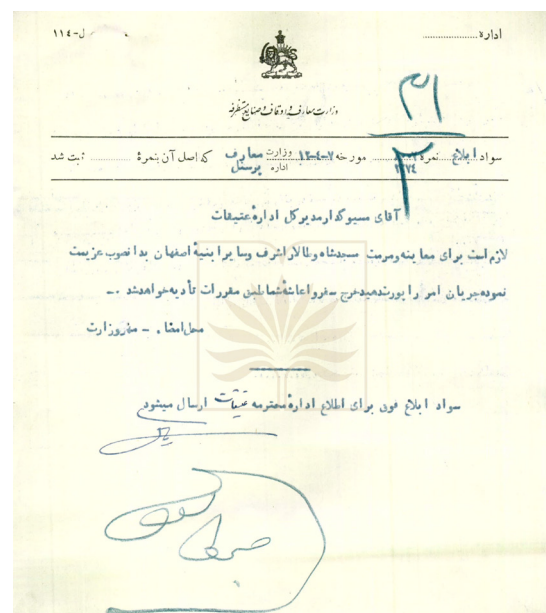 اداره
ل-۱۱۴
وزارت معارف و اوقاف و صنایع مستظرفه
۳۱
۳
سواد ابلاغ نمره ۲۲۷۴ مورخه ۷-۴-۱۳ وزارت معارف اداره پرسنل که اصل آن بنمرهٔ ثبت شد
آقای مسیو گدار مدیر کل ادارهٔ عتیقات
لازم است برای معاینه و مرمت مسجد شاه و طالار اشرف و سایر ابنیهٔ اصفهان بدانصوب عزیمت
نموده جریان امر را راپورت دهید خرج سفر و اعاشهٔ شما طبق مقررات تأدیه خواهد شد .-
محل امضا . - مهر وزارت
سواد ابلاغ فوق برای اطلاع ادارهٔ محترمه عتیقات ارسال میشود